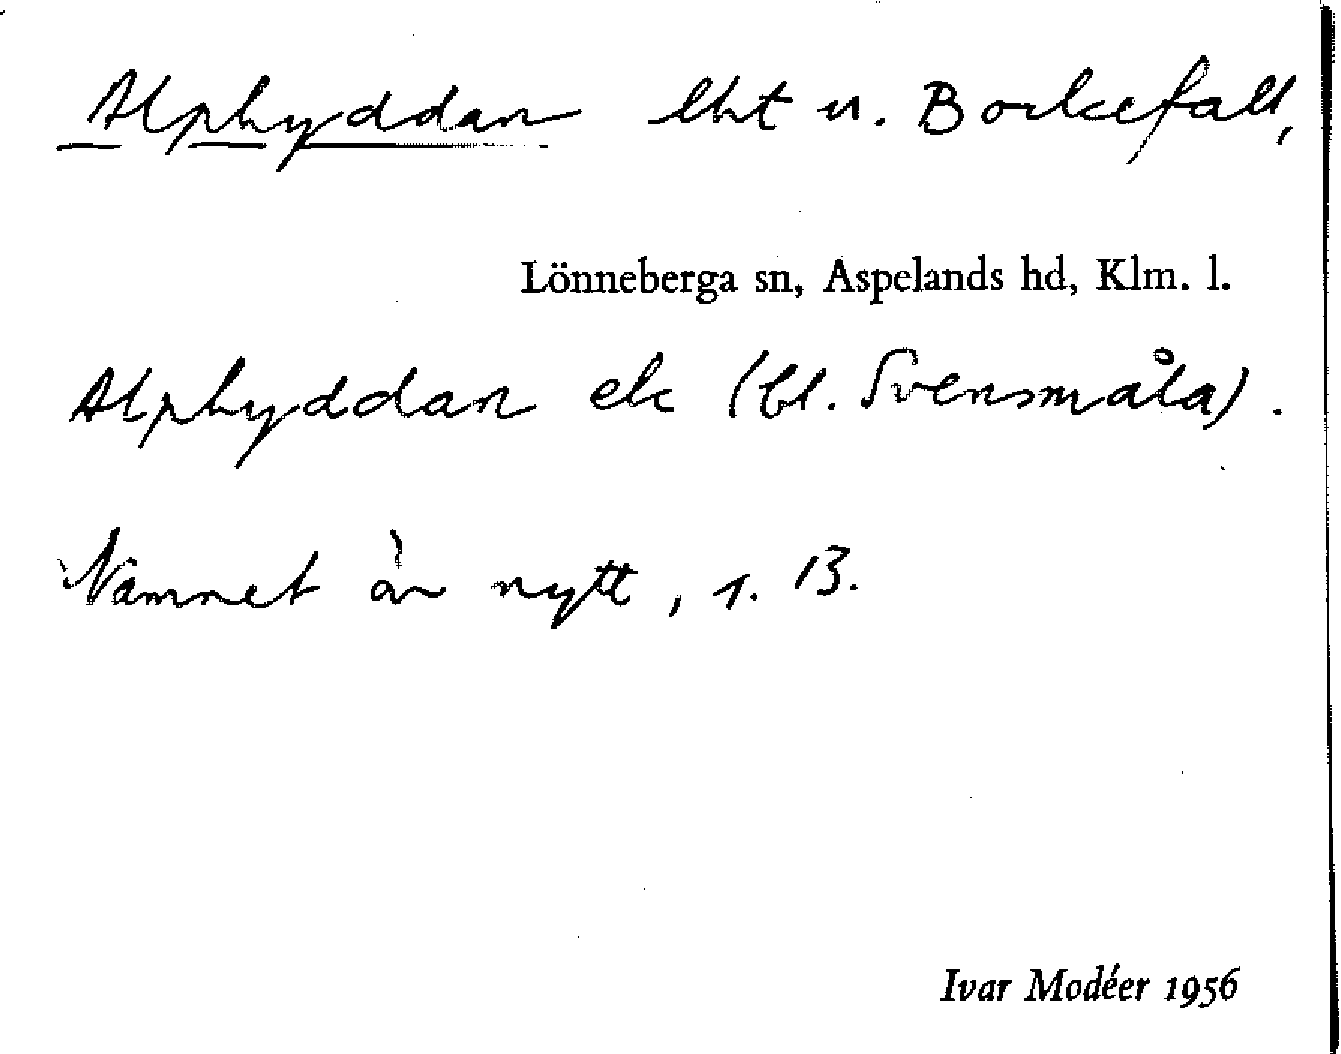 Alphyddan lht u. Borkefall,
Lönneberga sn, Aspelands hd, Klm. l.
Alphyddan ek (bl. Svensmåla).
Namnet är nytt, s. B.
Ivar Modéer 1956